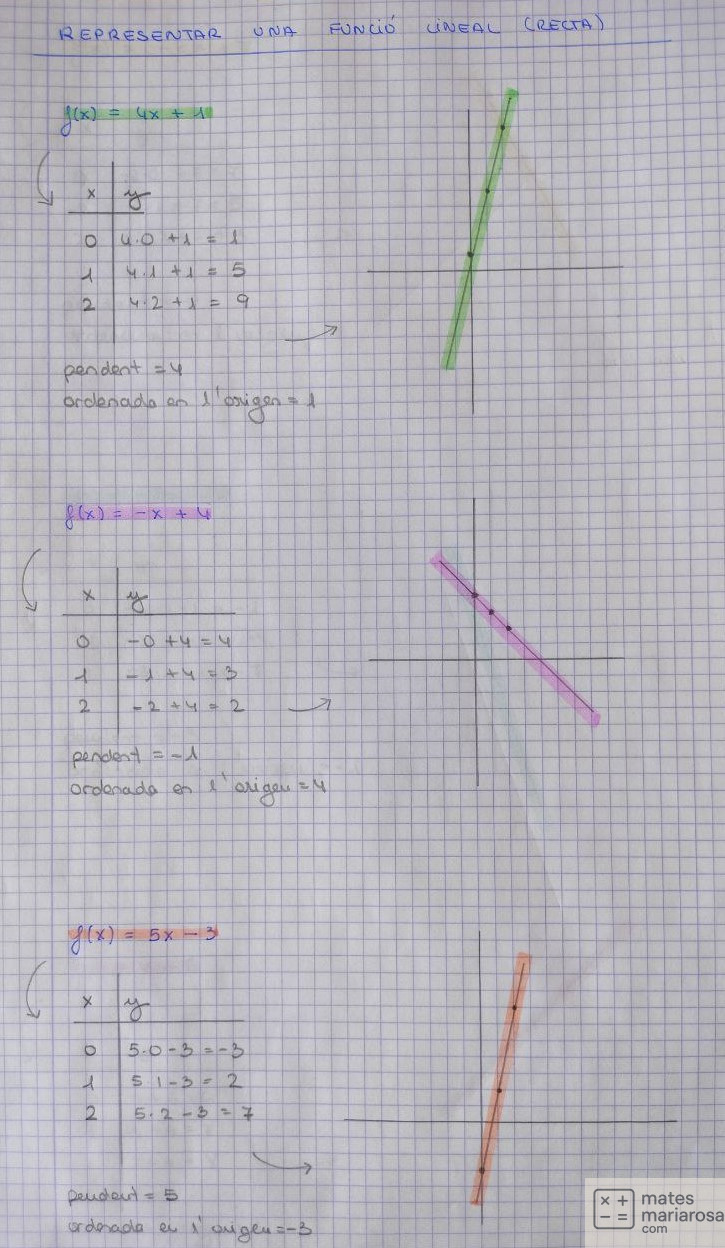 REPRESENTAR UNA FUNCIÓ LINEAL (RECTA)
f(x) = 4x + 1
x y
0 4·0 +1 = 1
1 4·1 +1 = 5
2 4·2 +1 = 9
pendent = 4
ordenada en l'origen = 1
f(x) = -x + 4
x y
0 -0 +4 = 4
1 -1 +4 = 3
2 -2 +4 = 2
pendent = -1
ordenada en l'origen = 4
f(x) = 5x - 3
x y
0 5·0 - 3 = -3
1 5·1 - 3 = 2
2 5·2 - 3 = 7
pendent = 5
ordenada en l'origen = -3
x + - = mates
mariarosa
com